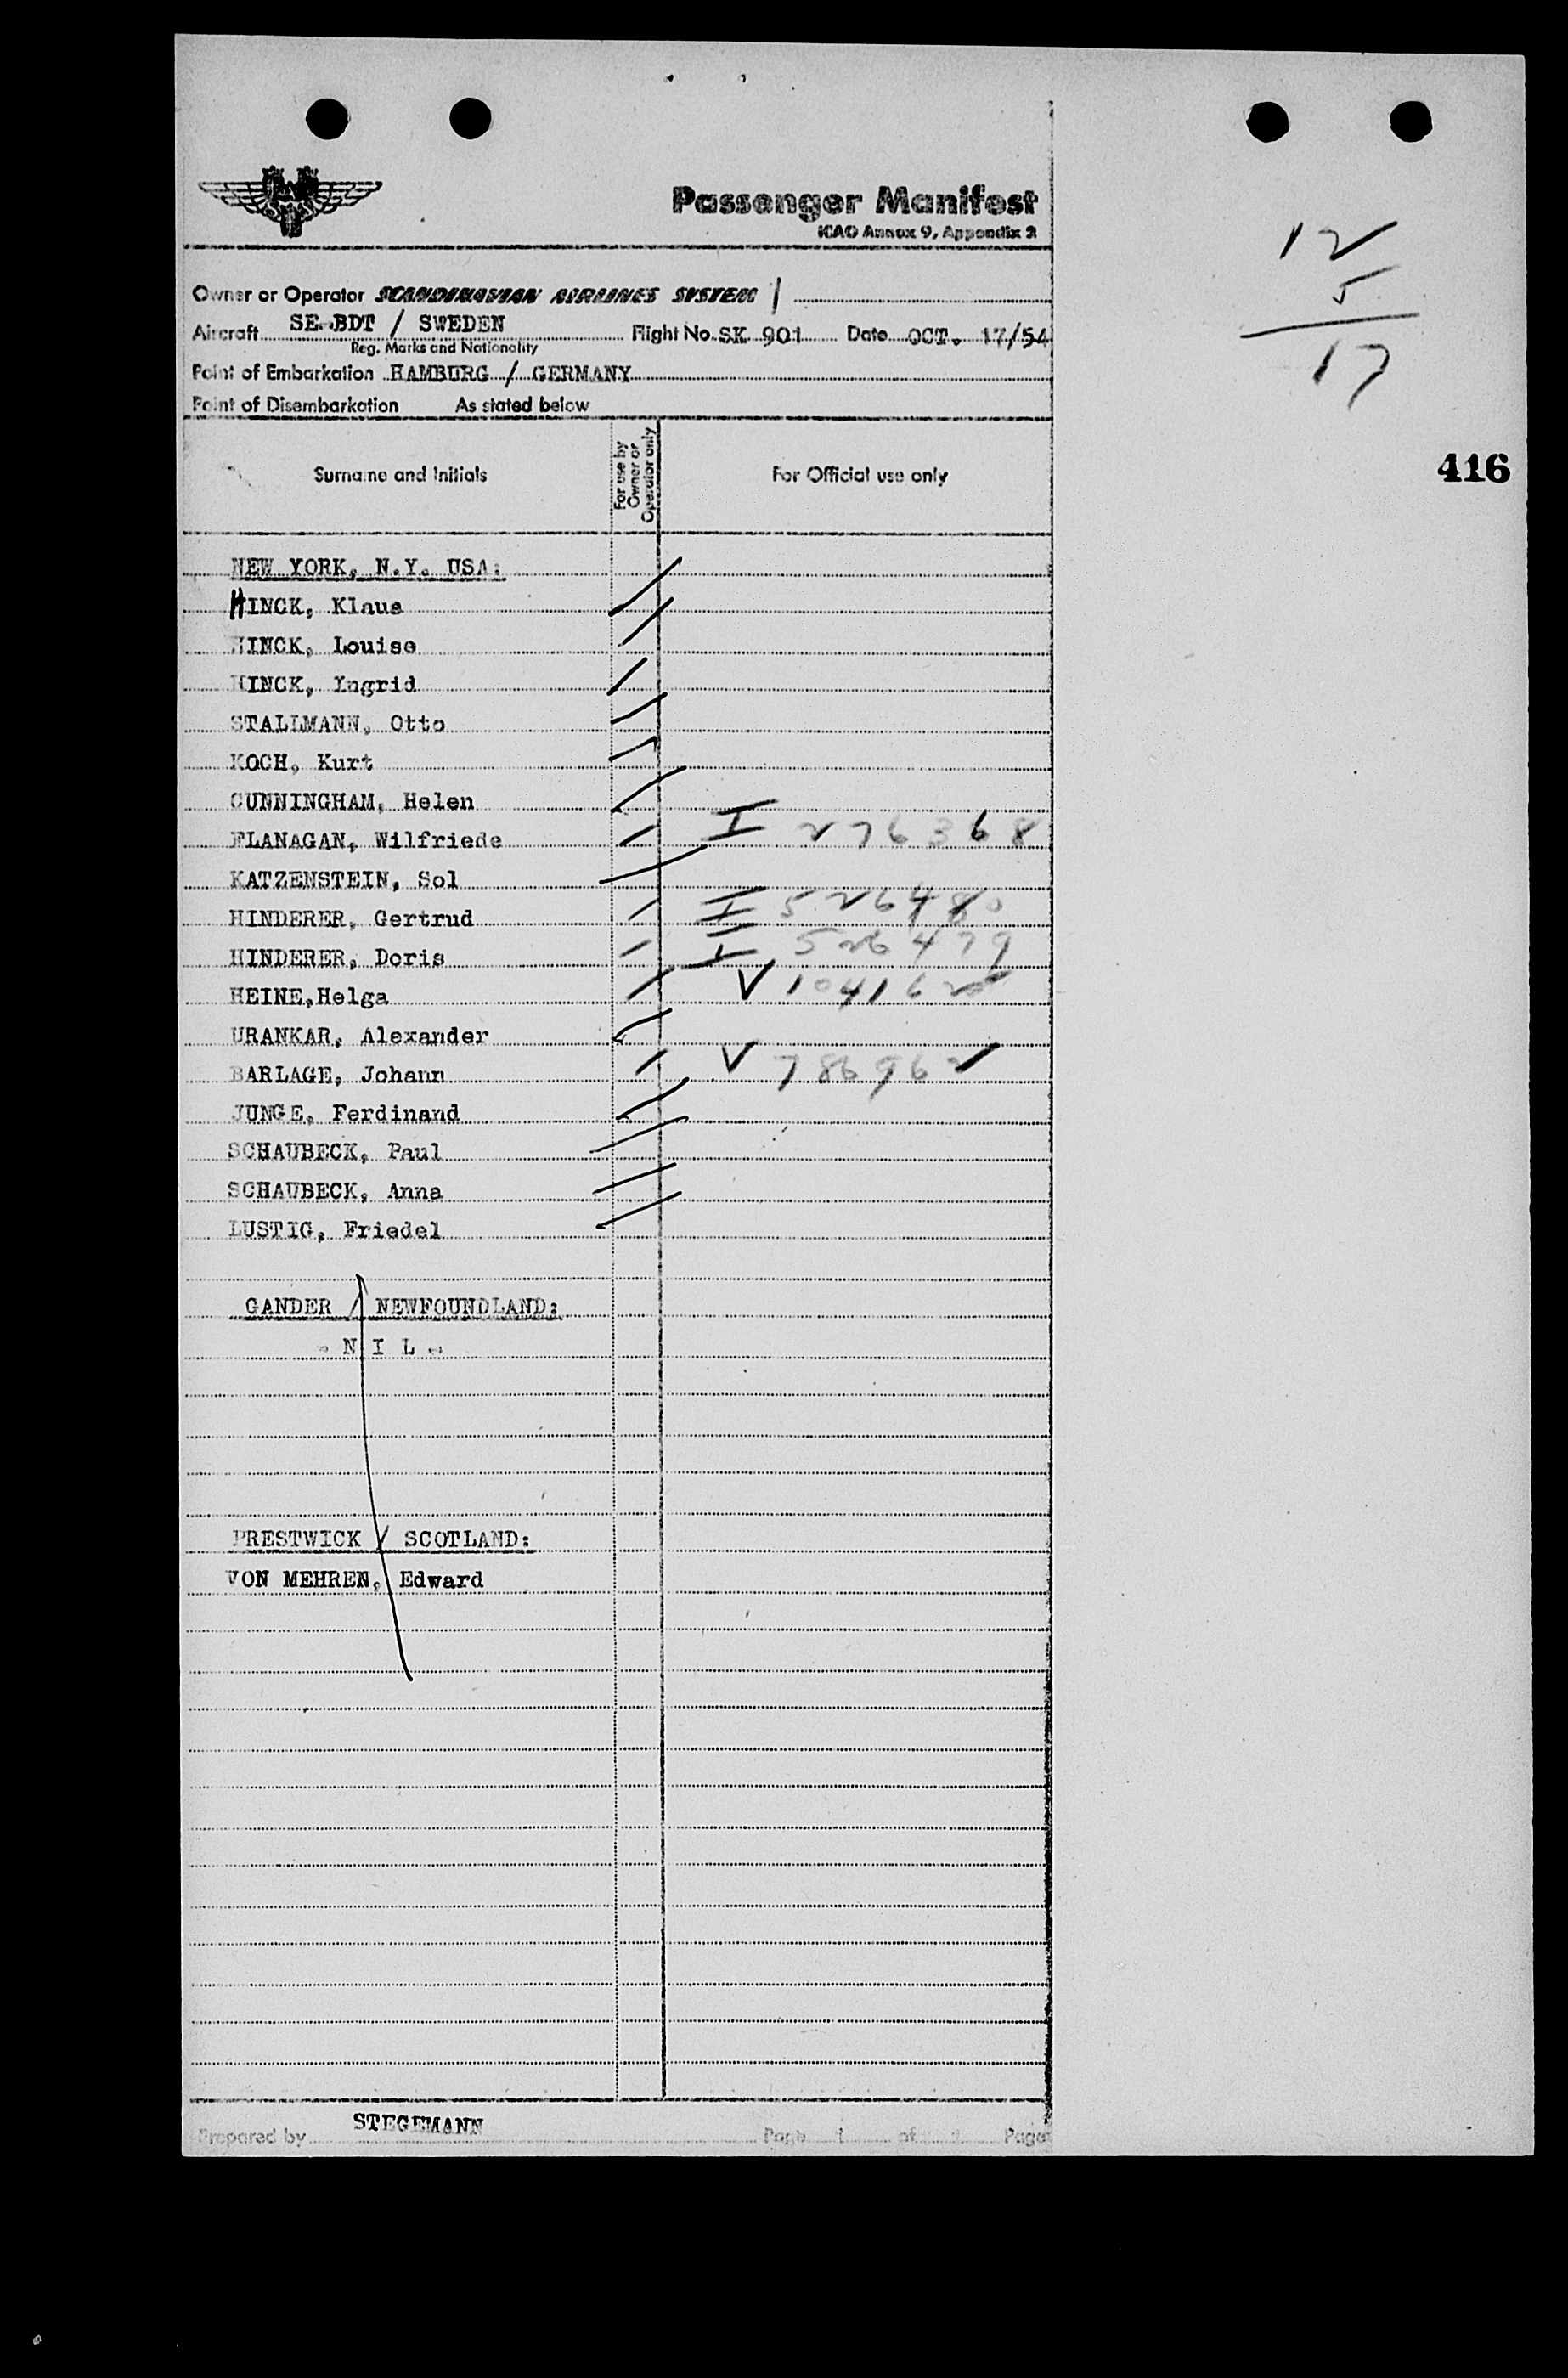 Passenger Manifest
ICAO Annex 9, Appendix 2
12
5
17
Owner or Operator SCANDINAVIAN AIRLINES SYSTEM
Aircraft SE-BDT / SWEDEN Flight No. SK 901 Date OCT. 17/54
Reg. Marks and Nationality
Point of Embarkation HAMBURG / GERMANY
Point of Disembarkation As stated below
416
Surname and Initials For use by Owner or Operator only For Official use only
NEW YORK, N.Y. USA:
HINCK, Klaus
HINCK, Louise
HINCK, Ingrid
STALLMANN, Otto
KOCH, Kurt
CUNNINGHAM, Helen
FLANAGAN, Wilfriede I 276368
KATZENSTEIN, Sol
HINDERER, Gertrud I 526480
HINDERER, Doris I 526479
HEINE,Helga V 104162
URANKAR, Alexander
BARLAGE, Johann V 786962
JUNGE, Ferdinand
SCHAUBECK, Paul
SCHAUBECK, Anna
LUSTIG, Friedel
GANDER / NEWFOUNDLAND:
- N I L -
PRESTWICK / SCOTLAND:
VON MEHREN, Edward
Prepared by STEGEMANN Page 1 of Page